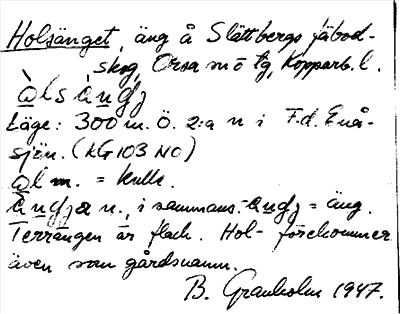 Holsänget, äng å Slättbergs fäbod-
skog, Orsa sn o tg, Kopparb. l.
Läge: 300 m. Ö. 2:a n i F.d. Enå-
sjön. (KG103 NO)
= kulle.
i sammans. = äng.
Terrängen är flack. Hol- förekommer
även som gårdsnamn.
B. Granholm 1947.